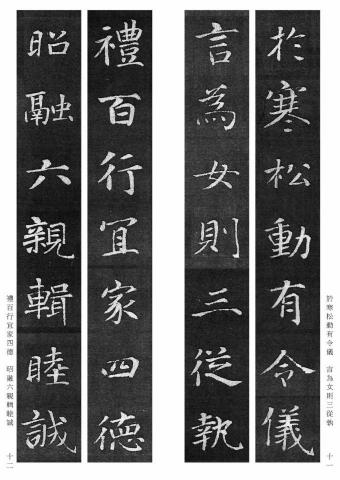 於寒松動有令儀
言為女則三從執
禮百行宜家四德
昭融六親輯睦誠
於寒松動有令儀 言為女則三從執
十一
禮百行宜家四德 昭融六親輯睦誠
十二